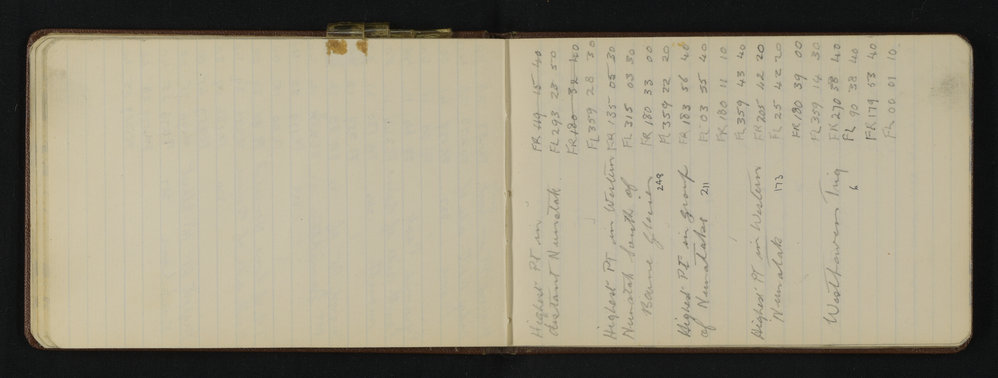 Highest Pt in FR 15 40
distant Nunatak FL 293 28 50
FR 180 32 40
FL 359 28 30
Highest PT in Western FR 135 05 30
Nunatak South of FL 315 03 30
Barne Glacier 248 FR 180 33 00
FL 359 22 20
Highest Pt in group FR 183 56 40
of Nunataks 211 FL 03 55 40
FR 180 11 10
FL 359 43 40
Highest PT in Western FR 205 42 20
Nunatak 173 FL 25 42 20
FR 180 39 00
FL 359 14 30
Trig FR 270 38 40
6 FL 90 38 40
FR 179 53 40
FL 00 01 10